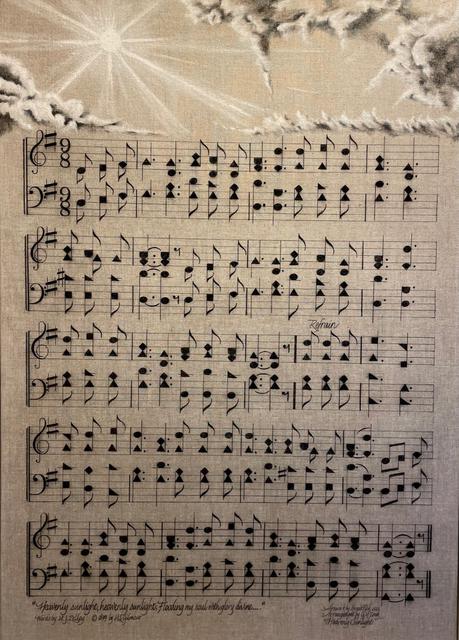 9 8
9 8
Refrain
"Heavenly sunlight, heavenly sunlight, Flooding my soul with glory divine...."
Words by H.J. Zelley © 1899 by
Arrangement by
"Heavenly Sunlight"